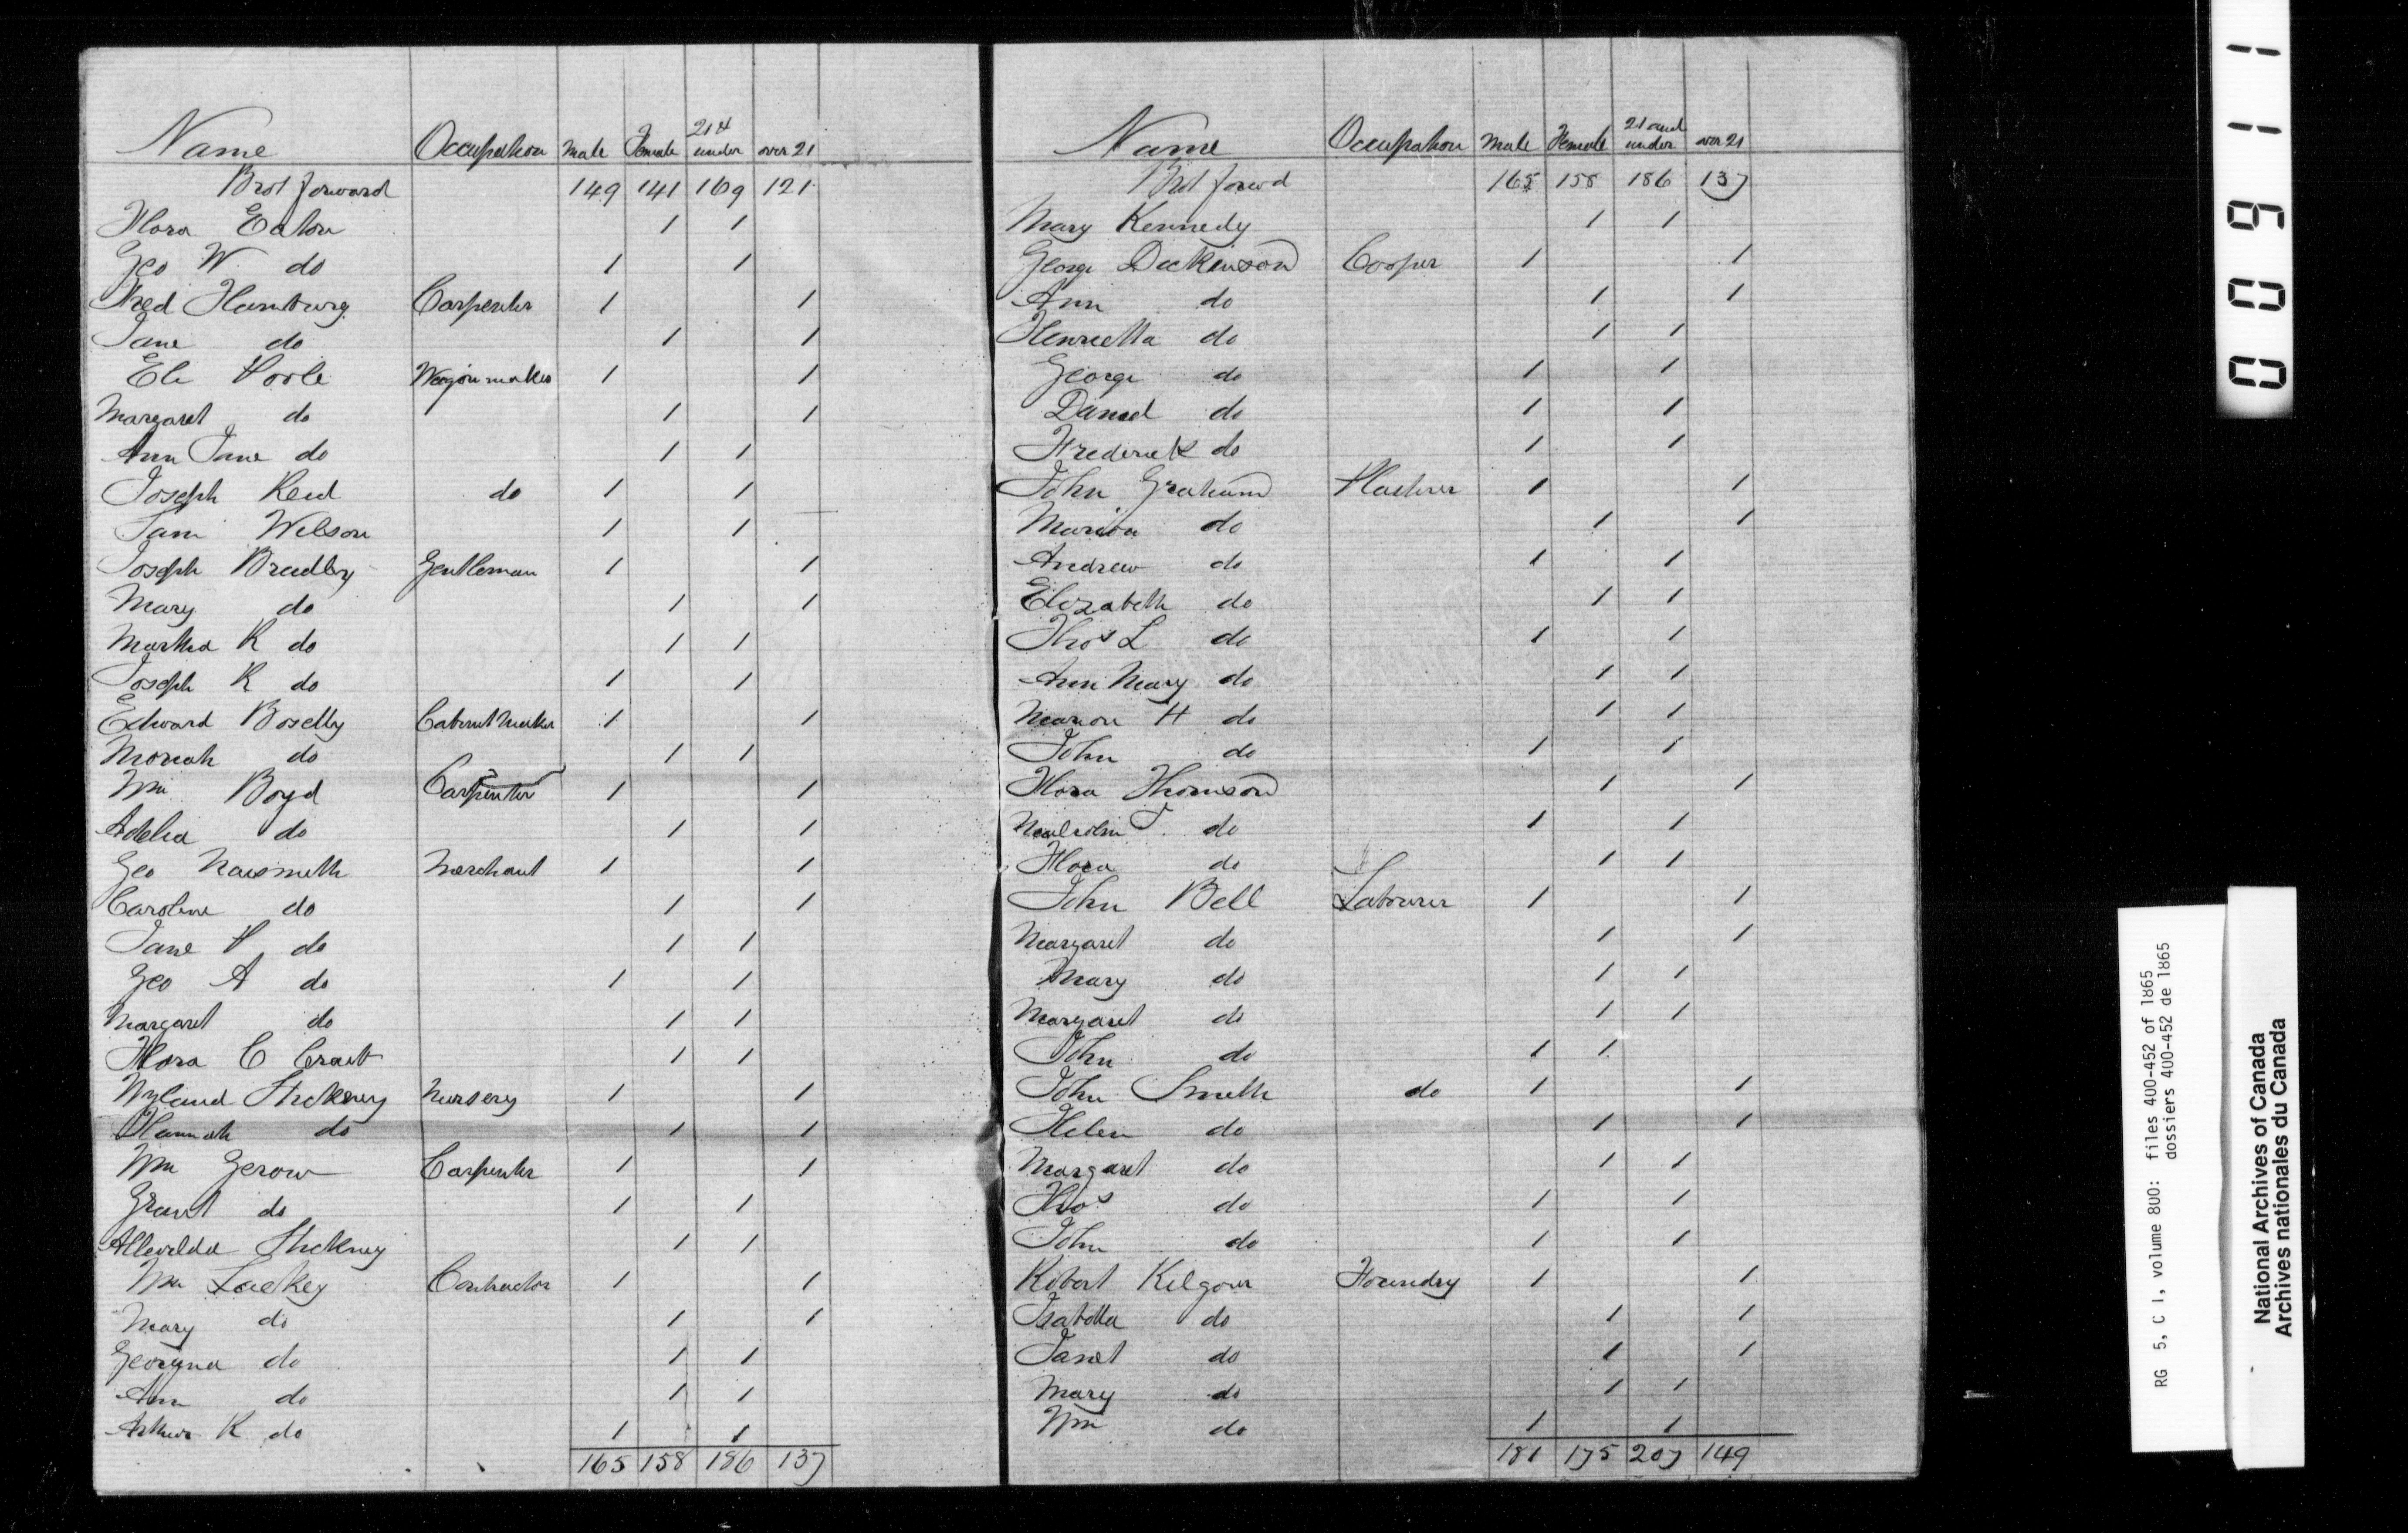 Name Occupation Male Female 21 & under over 21
Brot forward 149 141 169 121
Flora Eaton 1 1
Geo W do 1 1
Fred Hamburg Carpenter 1 1
Jane do 1 1
Eli Poole Wagon maker 1 1
Margaret do 1 1
Ann Jane do 1 1
Joseph Reid do 1 1
Sam Wilson 1 1
Joseph Bradley Gentleman 1 1
Mary do 1 1
Martha R do 1 1
Joseph R do 1 1
Edward Boselly Cabinet Maker 1 1
Moriah do 1 1
Wm Boyd Carpenter 1 1
Adelia do 1 1
Geo Naismith Merchant 1 1
Caroline do 1 1
Jane P do 1 1
Geo A do 1 1
Margaret do 1 1
Flora C 1 1
Stickney Nursery 1 1
Hannah do 1 1
Wm Gerow Carpenter 1 1
Grant do 1 1
Stickney 1 1
Wm Lackey Contractor 1 1
Mary do 1 1
Georgina do 1 1
Ann do 1 1
Arthur K do 1 1
165 158 186 137
Name Occupation Male Female 21 and under over 21
Brot forwd 165 158 186 137
Mary Kennedy 1 1
George Dickinson Cooper 1 1
Ann do 1 1
Henrietta do 1 1
George do 1 1
Daniel do 1 1
Frederick do 1 1
John Graham Plasterer 1 1
Marion do 1 1
Andrew do 1 1
Elizabeth do 1 1
Thos L do 1 1
Ann Mary do 1 1
Marion H do 1 1
John do 1 1
Flora Thomson 1 1
Malcolm T. do 1 1
Flora do 1 1
John Bell Labourer 1 1
Margaret do 1 1
Mary do 1 1
Margaret do 1 1
John do 1 1
John Smith do 1 1
Helen do 1 1
Margaret do 1 1
Thos do 1 1
John do 1 1
Robert Kilgour Foundry 1 1
Isabella do 1 1
Janet do 1 1
Mary do 1 1
Wm do 1 1
181 175 207 149
000911
RG 5, C 1, volume 800: files 400-452 of 1865
dossiers 400-452 de 1865
National Archives of Canada
Archives nationales du Canada